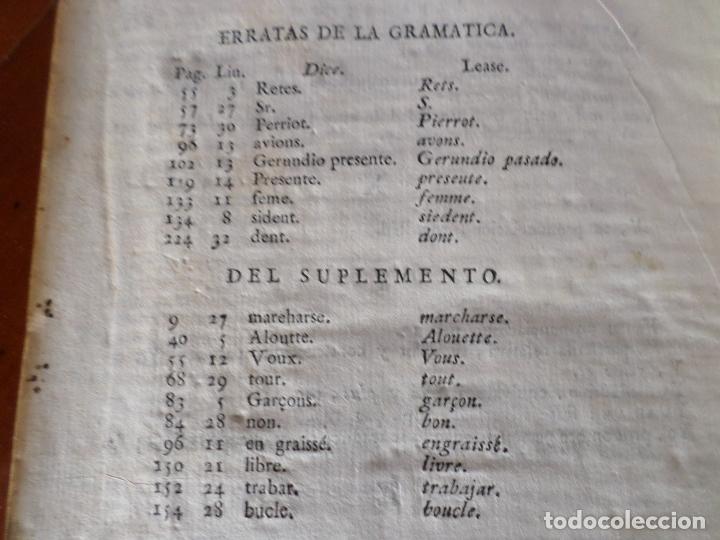 ERRATAS DE LA GRAMATICA.
Pag. Lin. Dice. Lease.
55 3 Retes. Rets.
57 27 Sr. S.
73 30 Perriot. Pierrot.
96 13 avions. avons.
102 13 Gerundio presente. Gerundio pasado.
119 14 Presente. preseute.
133 11 feme. femme.
134 8 sident. siedent.
224 32 dent. dont.
DEL SUPLEMENTO.
9 27 mareharse. marcharse.
40 5 Aloutte. Alouette.
55 12 Voux. Vous.
68 29 tour. tout.
83 5 Garçons. garçon.
84 28 non. bon.
96 11 en graissé. engraissé.
150 21 libre. livre.
152 24 trabar. trabajar.
154 28 bucle. boucle.
todocoleccion.net